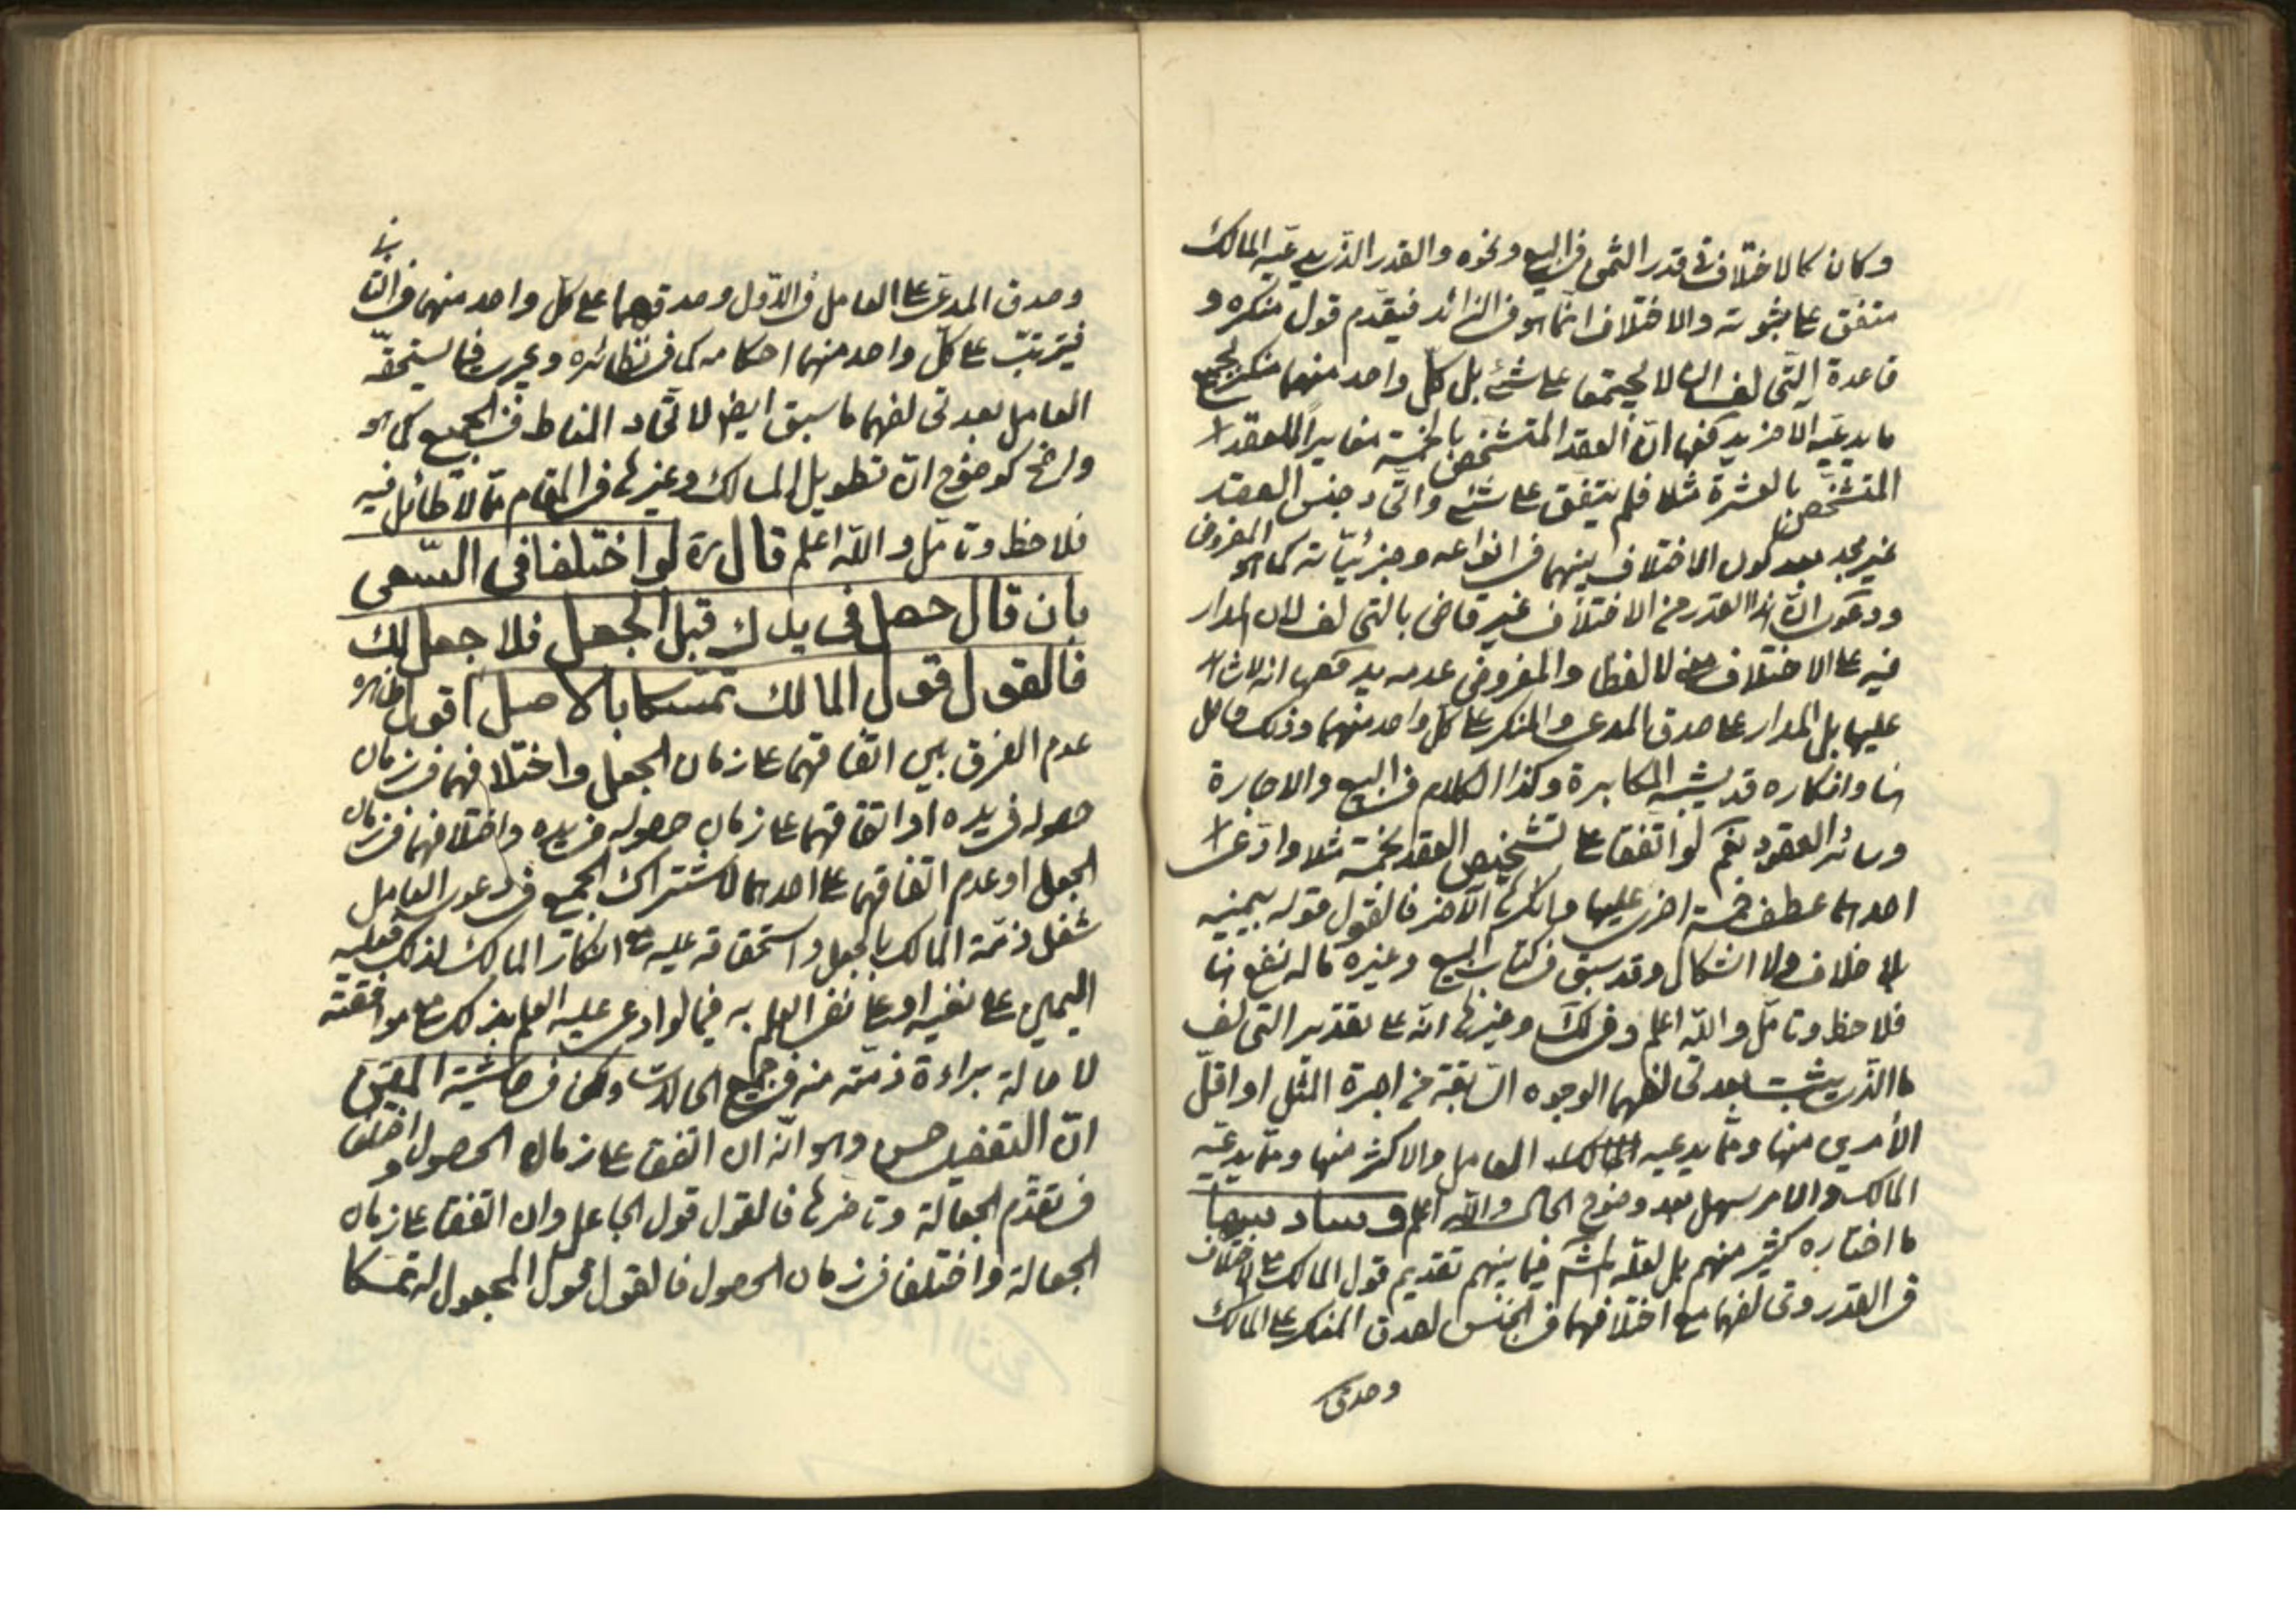 وكان كالاختلاف في قدر الثمن في البيع ونحوه والقدر الذي يدعيه المالك
متفق على ثبوته والاختلاف انما هو في الزائد فيقدم قول منكره و
قاعدة التحالف ان لا يجتمعا على شئ بل كل واحد منهما منكر لجميع
ما يدعيه الآخر يدفعها ان العقد المتشخص بالخمسة مغايرا للعقد
المتشخص بالعشرة مثلا فلم يتفق على شئ واتحاد جنس العقد
غير مجد بعد كون الاختلاف بينهما في انواعه وجزئياته كما هو المفروض
ودعوى ان هذا القدر من الاختلاف غير قاض بالتحالف لان المدار
فيه على الاختلاف لا لفظا والمفروض عدمه يدفعها انه لا
عليها بل المدار على صدق المدعي والمنكر على كل واحد منهما وذلك حاصل
هنا وانكاره قد يشبه المكابرة وكذا الكلام في البيع والاجارة
وسائر العقود نعم لو اتفقا على تشخيص العقد بخمسة مثلا وادعى
احدهما عطف خمسة اخرى عليها وانكرها الآخر فالقول قوله بيمينه
بلا خلاف ولا اشكال وقد سبق في كتاب البيع وغيره ما له نفع هنا
فلاحظ وتامل والله اعلم وفي لك وغيرها انه على تقدير التحالف
ما الذي يثبت بعد تحالفهما الوجوه السابقة من اجرة المثل او اقل
الأمرين منها ومما يدعيه العامل والاكثر منها ومما يدعيه
المالك والامر سهل بعد وضوح الحال والله اعلم وسادسها
ما اختاره كثير منهم بل لعله المشهور فيما بينهم تقديم قول المالك مع الاختلاف
في القدر وتحالفهما مع اختلافهما في الجنس لصدق المنكر على المالك
وصدق
وصدق المدعي على العامل في الاول وصدقهما على كل واحد منهما في الثاني
فيترتب على كل واحد منهما احكامه كما في نظائره ويجري فيما يستحقه
العامل بعد تحالفهما ما سبق ايضا لاتحاد المناط في الجميع كما هو
واضح كوضوح ان تطويل المسالك وغيرها في المقام مما لا طائل فيه
فلاحظ وتامل والله اعلم قال ره لو اختلفا في السعي
بان قال حصل في يدك قبل الجعل فلا جعل لك
فالقول قول المالك تمسكا بالاصل اقول ظاهره
عدم الفرق بين اتفاقهما على زمان الجعل واختلافهما في زمان
حصوله في يده او اتفاقهما على زمان حصوله في يده واختلافهما في زمان
الجعل او عدم اتفاقهما على احدهما لاشتراك الجميع في دعوى العامل
شغل ذمة المالك بالجعل واستحقاقه عليه مع انكار المالك لذلك فعليه
اليمين على نفيه او على نفي العلم به فيما لو ادعى عليه العلم بذلك مع موافقته
لاصالة براءة ذمته منه في جميع الحالات ولكن في حاشية المحقق
ان التفصيل حسن وهو انه ان اتفق على زمان الحصول واختلفا
في تقدم الجعالة وتاخرها فالقول قول الجاعل وان اتفقا على زمان
الجعالة واختلفا في زمان الحصول فالقول قول المجعول له تمسكا